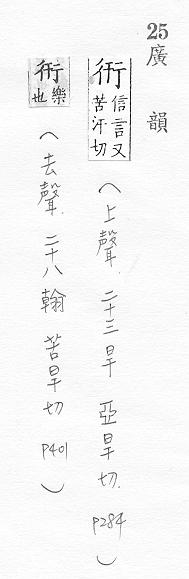 25 廣韻
衎 信言又苦汗切 (上聲. 二十三旱 亞旱切. P284)
衎 樂也 (去聲. 二十八翰 苦旱切 P401)